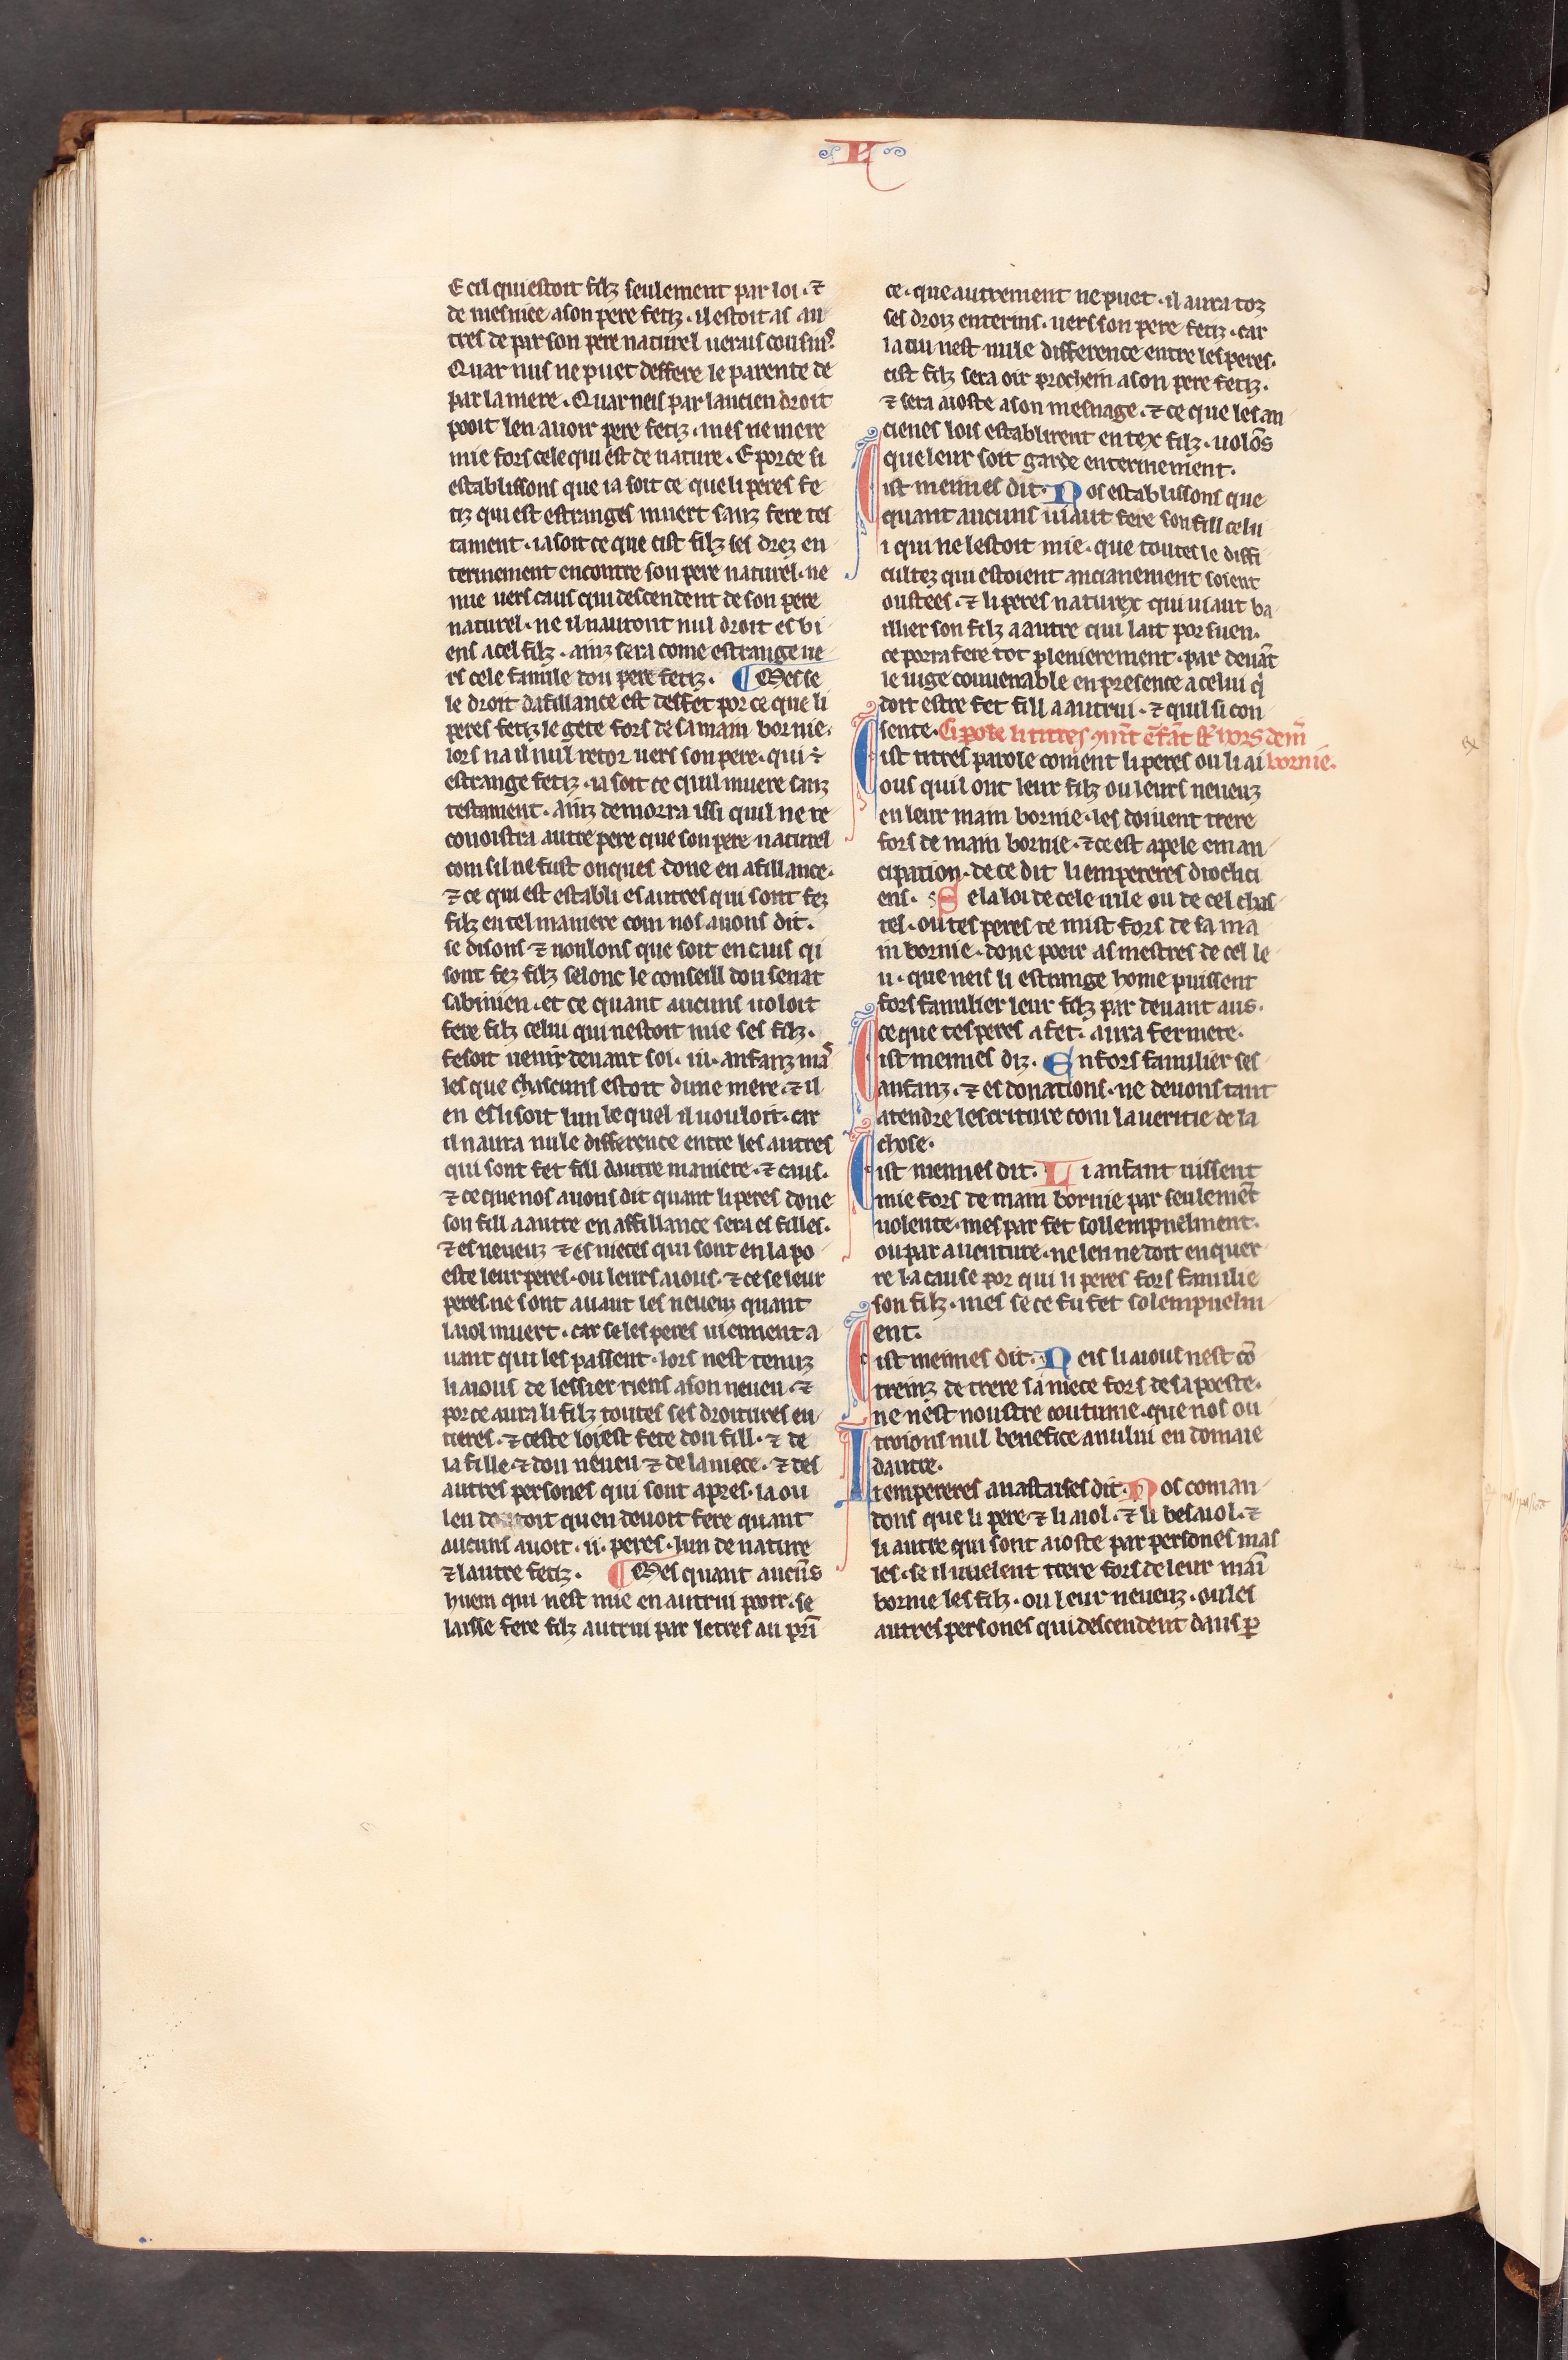 L
E cil qui estoit filz seulement par loi · ⁊
de mesniee a son pere fetiz · il estoit as au
tres de par son pere naturel uerais cousins.
Quar nus ne puet deffere le parente de
par la mere · Quar neis par lancien droit
pooit len auoir pere fetiz · mes ne mere
mie fors cele qui est de nature · E por ce si
establissons que ia soit ce que li peres fe
tiz qui est estranges muert sanz fere tes
tament · ia soit ce que cist filz ses drez en
terinement encontre son pere naturel · ne
mie uers caus qui descendent de son pere
naturel · ne il nauront nul droit es bi
ens a cel filz · ainz sera come estrange ue
rs cele famile dou pere fetiz · ¶ Mes se
le droit dafillance est deffet por ce que li
peres fetiz le gete fors de sa main bornie ·
lors na il nul retor uers son pere · qui ÷
estrange fetiz · ia soit ce quil muere sanz
testament · ainz demorra issi quil ne re
conoistra autre pere que son pere naturel
com sil ne fust onques done en afillance ·
⁊ ce qui est establi es autres qui sont fez
filz en tel maniere com nos auons dit ·
se disons ⁊ uoulons que soit en caus qi
sont fez filz selonc le conseill dou senat
sabinien · et ce quant aucuns uoloit
fere filz celui qui nestoit mie ses filz ·
fesoit uenir deuant soi · iii · anfanz mas
les que chascuns estoit dune mere · ⁊ il
en eslisoit lun le quel il uouloit · car
il naura nule difference entre les autres
qui sont fet fill dautre maniere · ⁊ caus ·
⁊ ce que nos auons dit quant li peres done
son fill a autre en affillance sera es filles ·
⁊ es neueuz ⁊ es nieces qui sont en la po
este leur peres · ou leurs aious · ⁊ ce se leur
peres ne sont auant les neueuz quant
laiol muert · car se les peres uienent a
uant qui les passent · lors nest tenuz
li aious de lessier riens a son neueu · ⁊
por ce aura li filz toutes ses droitures en
tieres · ⁊ ceste loi est fete dou fill · ⁊ de
la fille · ⁊ dou neueu ⁊ de la niece · ⁊ des
autres persones qui sont apres · la ou
len doutoit quen deuoit fere quant
aucuns auoit · ii · peres · lun de nature
⁊ lautre fetiz · ¶ Mes quant aucūs
huem qui nest mie en autrui pooir · se
laisse fere filz autrui par letres au pri
ce · que autrement ne puet · il aura toz
ses droiz enterins · uers son pere fetiz · car
la ou nest nule difference entre les peres ·
cist filz sera oir prochein a son pere fetiz ·
⁊ sera aioste a son mesnage · ⁊ ce que les an
cienes lois establirent en tex filz · uolōs
que leur soit garde enterinement ·
Cist meimes dit · Nos establissons que
quant aucuns uiaut fere son fill celu
i qui ne lestoit mie · que toutes le diffi
cultez qui estoient ancianement soient
oustees · ⁊ li peres naturex qui uiaut ba
illier son filz a autre qui lait por suen ·
ce porra fere tot plenierement · par deuāt
le iuge couuenable en presence a celui q̇
doit estre fet fill a autrui · ⁊ quil si con
sente · Ci parole li titres ꝯmēt ēfāt st̄ hors de mī
bornie ·
Cist titres parole coment li peres ou li ai
ous quil ont leur filz ou leurs neueuz
en leur main bornie · les doiuent trere
fors de main bornie · ⁊ ce est apele eman
cipation · de ce dit li empereres dioclici
ens · Se la loi de cele uile ou de cel chas
tel · ou tes peres te mist fors de sa ma
in bornie · done pooir as mestres de cel le
u · que neis li estrange home puissent
fors familier leur filz par deuant aus ·
ce que tes peres a fet · aura fermete ·
Cist meimes diz · En fors familier ses
anfanz · ⁊ es donations · ne deuons tant
atendre lescriture com la ueritie de la
chose ·
Cist meimes dit · Li anfant nissent
mie fors de main bornie par seulemēt
uolente · mes par fet sollempnelment ·
ou par auenture · ne len ne doit enquer
re la cause por qui li peres fors familie
son filz · mes se ce fu fet solempnelm
ent ·
Cist meimes dit · Neis li aious nest cō
treinz de trere sa niece fors de sa poeste ·
ne nest noustre coutume · que nos ou
troions nul benefice a nului en domaie
dautre ·
Li empereres anastaises dit · Nos coman
dons que li pere · ⁊ li aiol · ⁊ li besaiol · ⁊
li autre qui sont aioste par persones mas
les · se il uuelent trere fors de leur mai
bornie les filz · ou leur neueuz · ou les
autres persones qui descendent daus ꝑ